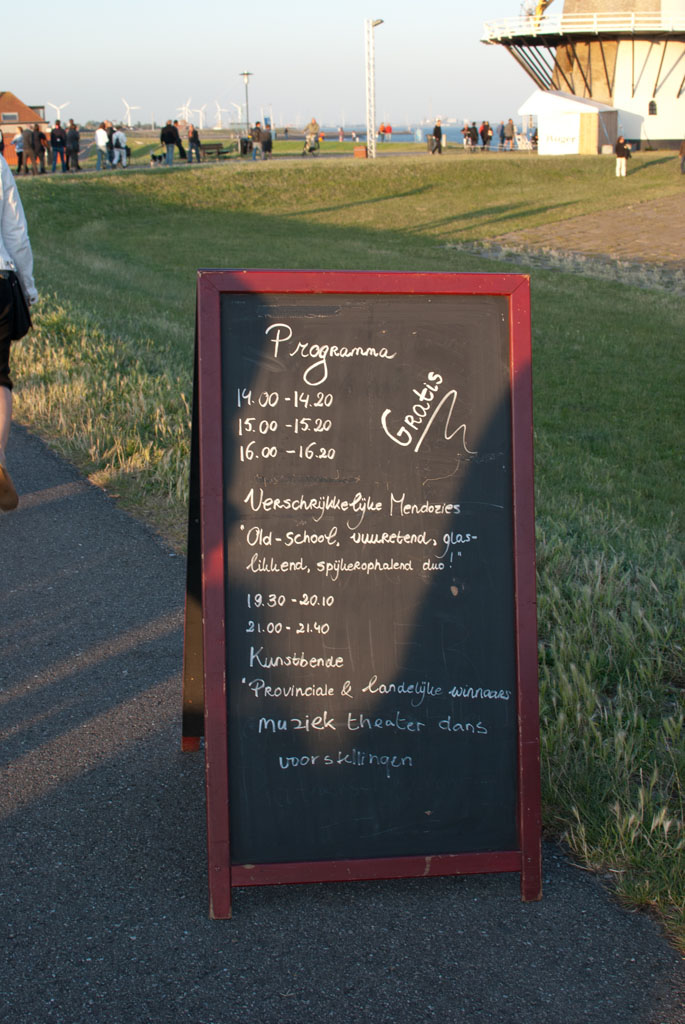 Programma
14.00 - 14.20
Gratis
15.00 - 15.20
16.00 - 16.20
Verschrijkkelijke Mendozies
"Old-school, vuuretend, glas-
likkend, spijkerophalend duo!"
19.30 - 20.10
21.00 - 21.40
Kunstbende
"Provinciale & landelijke winnaars
muziek theater dans
voorstellingen